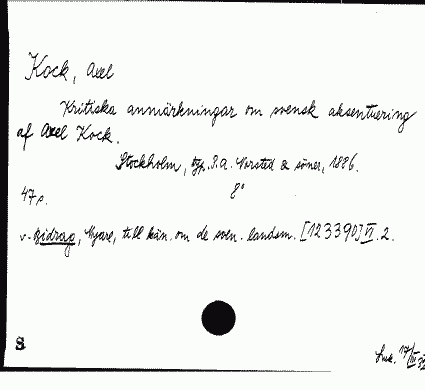 Kock, Axel
Kritiska anmärkningar om svensk aksentuering
af Axel Kock.
Stockholm, typ. P.A. Norsted & söner, 1886.
8°
47 s.
v. Bidrag, Nyare, till kän. om de sven. landsm. [123390] VI. 2.
S
17/